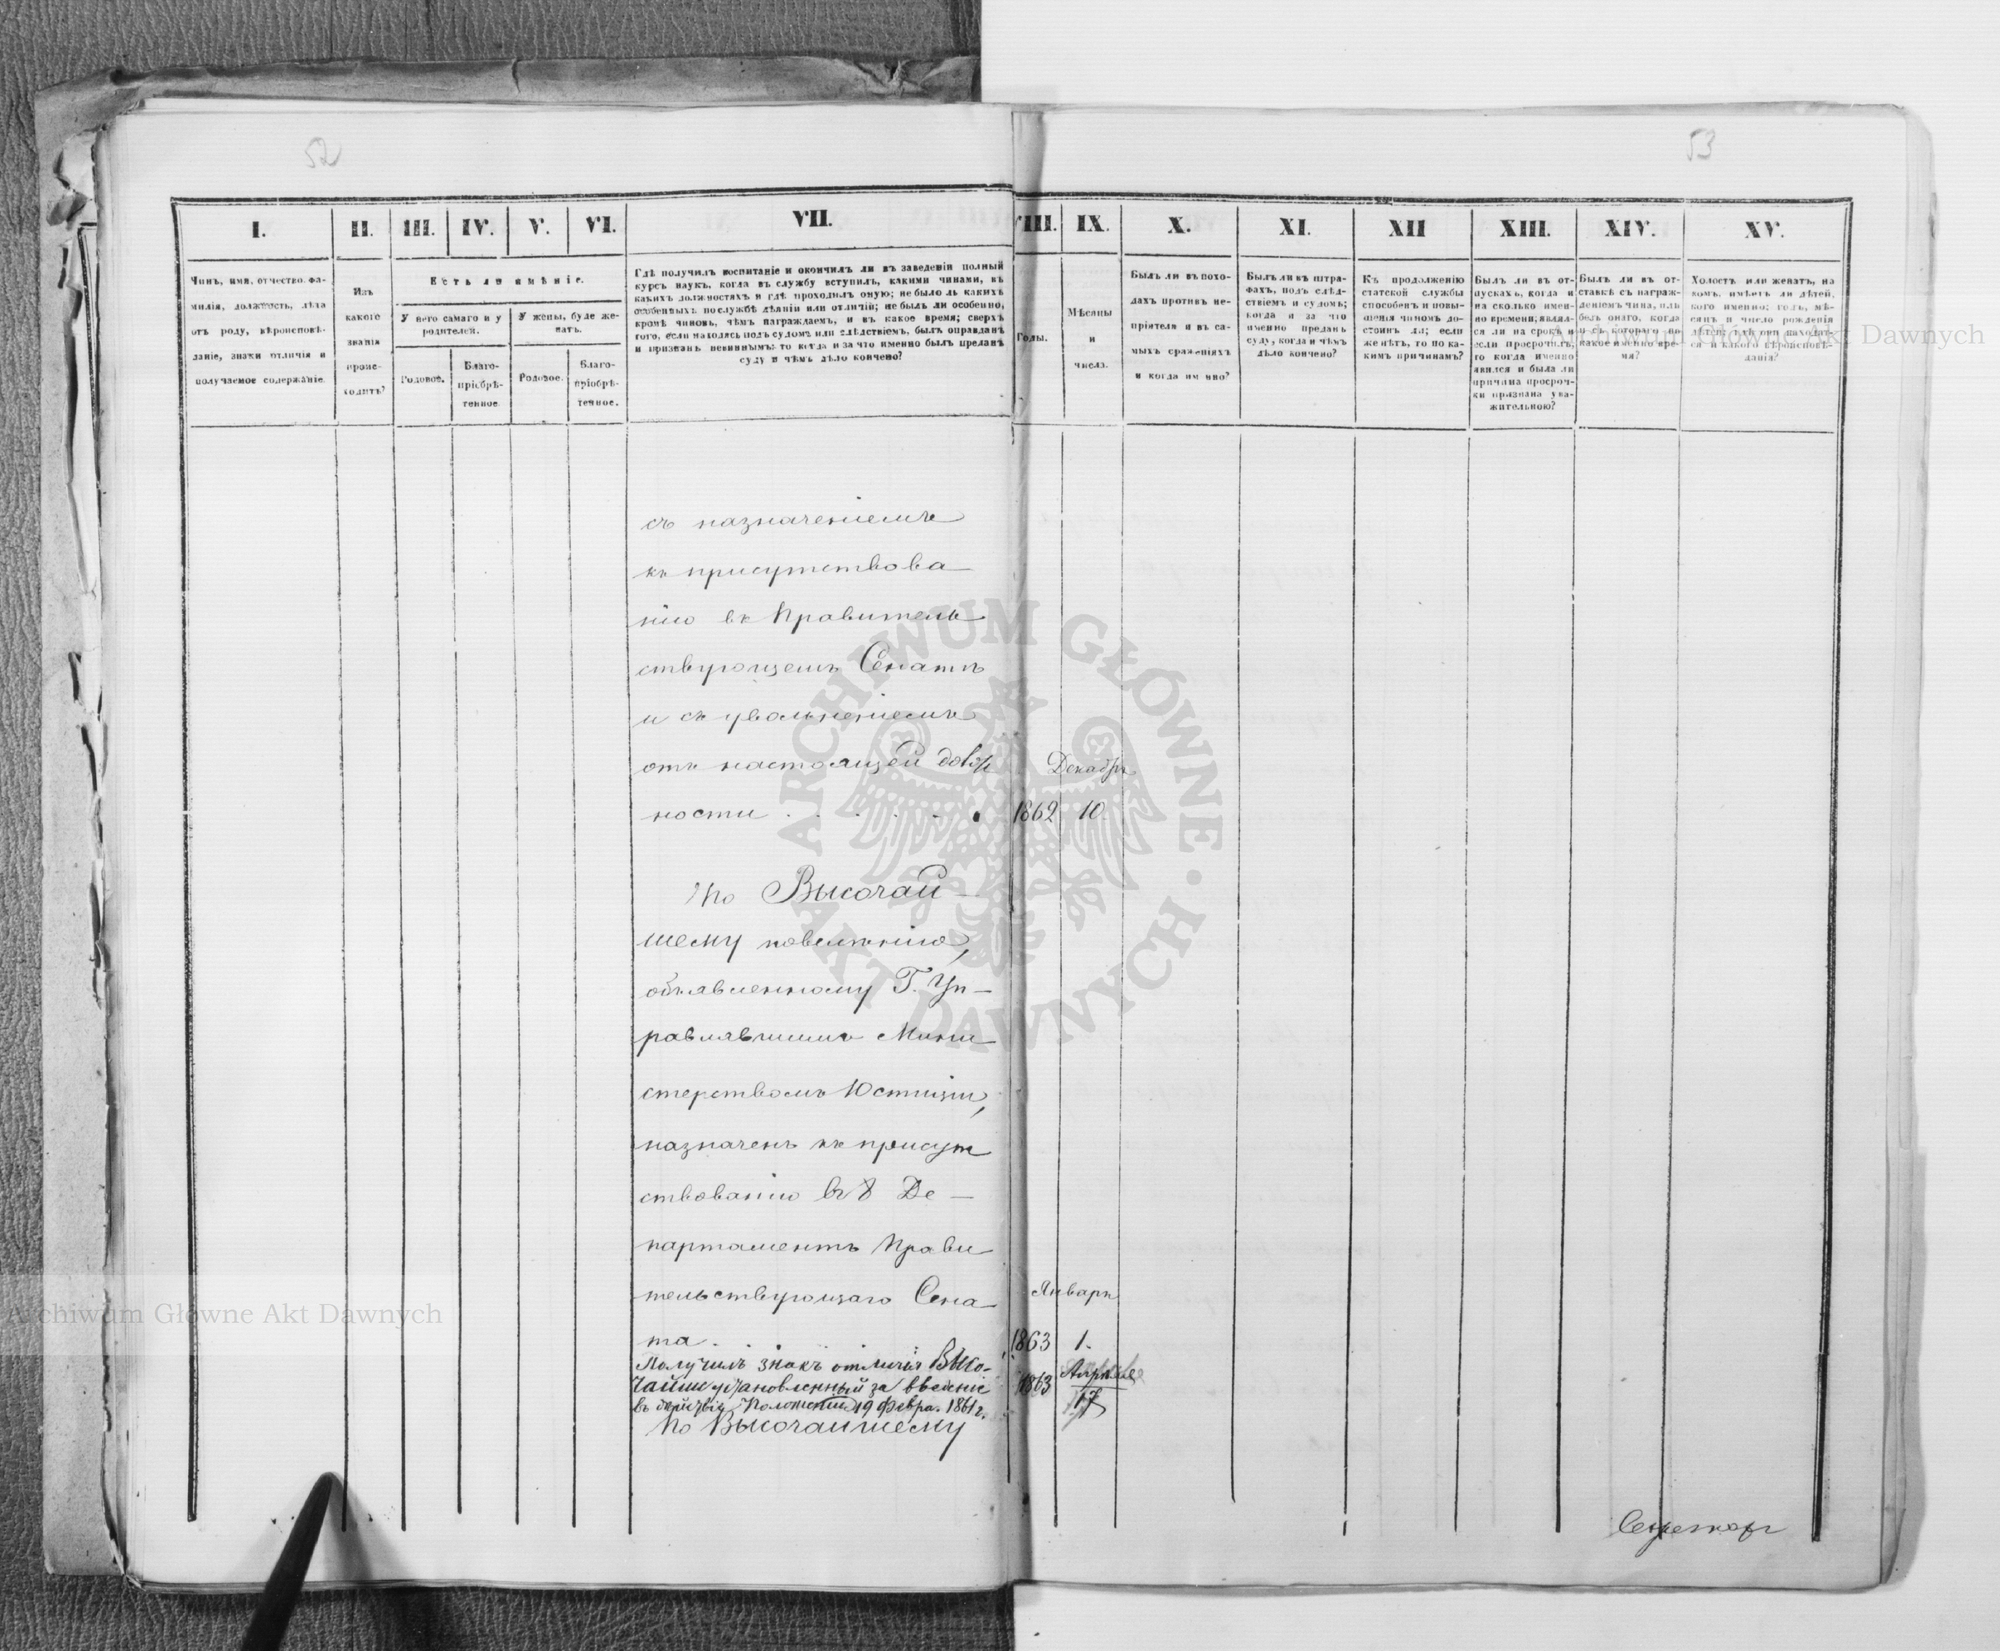 52
53
I.
II.
III.
IV.
V.
VI.
VII.
VIII.
IX.
X.
XI.
XII
XIII.
XIV.
XV.
Чинъ, имя, отчество, фамилія, должность, лѣта
отъ роду, вѣроисповѣданіе, знаки отличія и
получаемое содержаніе.
Изъ
какого
званія
происходитъ?
Есть ли имѣніе.
У него самаго и у родителей.
У жены, буде женатъ.
Родовое.
Благопріобрѣтенное
Родовое.
Благопріобрѣтенное.
Гдѣ получилъ воспитаніе и окончилъ ли въ заведеніи полный
курсъ наукъ, когда въ службу вступилъ, какими чинами, въ
какихъ должностяхъ и гдѣ проходилъ оную; не было ль какихъ
особенныхъ по службѣ дѣяній или отличій; не былъ ли особенно,
кромѣ чиновъ, чѣмъ награждаемъ, и въ какое время; сверхъ
того, если находясь подъ судомъ или слѣдствіемъ, былъ оправданъ
и признанъ невиннымъ: то когда и за что именно былъ преданъ
суду и чѣмъ дѣло кончено?
Годы.
Мѣсяцы
и
числа.
Былъ ли въ походахъ противъ непріятеля и въ самыхъ сраженіяхъ
и когда именно?
Былъ ли въ штрафахъ, подъ слѣдствіемъ и судомъ;
когда и за что
именно преданъ
суду, когда и чѣмъ
дѣло кончено?
Къ продолженію
статской службы
способенъ и повышенія чиномъ достоинъ ли; если
же нѣтъ, то по какимъ причинамъ?
Былъ ли въ отпускахъ, когда и
на сколько именно времени; являлся ли на срокъ и
если просрочилъ,
то когда именно
явился и была ли
причина просрочки признана уважительною?
Былъ ли въ отставкѣ съ награжденіемъ чина, или
безъ онаго, когда
и съ котораго по
какое именно время?
Холостъ или женатъ, на
комъ, имѣетъ ли дѣтей,
кого именно; годъ, мѣсяцъ и число рожденія
дѣтей; гдѣ они находятся и какого вѣроисповѣданія?
съ назначеніемъ
къ присутствова
нію въ Правитель
ствующемъ Сенатѣ
и съ увольненіемъ
отъ настоящей долж
Декабрь
ности . . . . . .
1862 10
По Высочай —
шему повелѣнію,
объявленному Г. Уп —
равлявшимъ Мини
стерствомъ Юстиціи,
назначенъ къ присут
ствованію въ 8 Де —
партаментъ Прави
тельствующаго Сена
Январь
та .
1863 1.
Получилъ знакъ отличія Высо-
чайше установленный за введеніе
1863 Апрѣля
17
въ дѣйствіе Положеній 19 февра. 1861 г.
По Высочайшему
Секретарь
ARCHIWUM GŁÓWNE AKT DAWNYCH
Archiwum Główne Akt Dawnych
Archiwum Główne Akt Dawnych